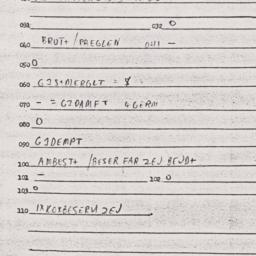 031 032 0
040 BRUT+ / PREGLEN 041 -
050 0
060 GJS+MERGLT = 8
070 - = GJDAMFT &GERM
080 0
090 GJDEMPT
100 AMBEST+ / BESER FAR ZEJ BEUD+
101 - 102 0
103 0
110 IXKOXBESERU ZEJ